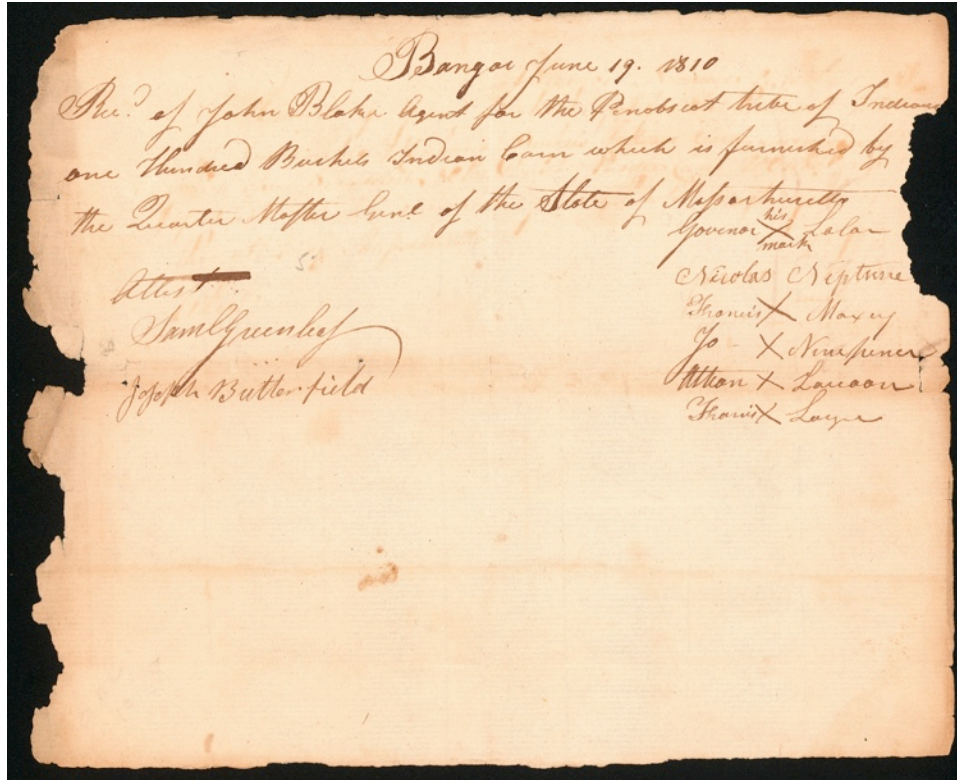 Bangor June 19. 1810
Recd of John Blake Agent for the Penobscot tribe of Indians
one Hundred Bushels Indian Corn which is furnished by
the Quarter Master Genl of the State of Massachusetts
Govenor his X mark Lalar
Nicolas Neptune
Francis X Maxey
Jo X Ninepence
Attean X
Francis X
Attest
Saml Greenleaf
Joseph Butterfield